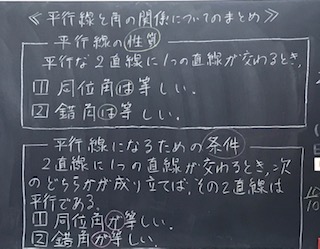 ≪平行線と角の関係についてのまとめ≫
平行線の性質
平行な2直線に1つの直線が交わるとき,
1 同位角は等しい.
2 錯角は等しい.
平行線になるための条件
2直線に1つの直線が交わるとき,次
のどちらかが成り立てば,その2直線は
平行である.
1 同位角が等しい.
2 錯角が等しい.